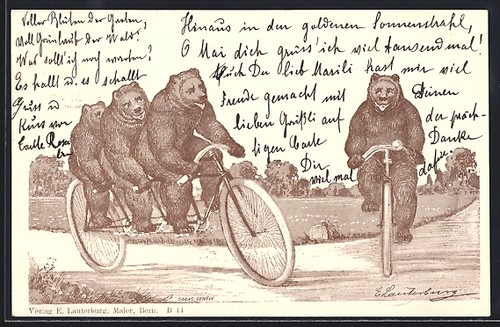 Voller Blüten der Garten,
Voll Grünlaub der Wald:
Was soll ich noch warten?
Es hallt u. es schallt
Gruss u
Kuss von
tante Rosa
Hinaus in den goldenen Sonnenstrahl,
O Mai dich grüss' ich viel tausendmal!
Auch Du lieb Marili hast mir viel
Freude gemacht mit Deinen
lieben Grüssli auf der präch-
tigen Carte Danke
Dir viel mal dafür
SADAG, GENÈVE
E. Lauterburg
Verlag E. Lauterburg, Maler, Bern. B 14